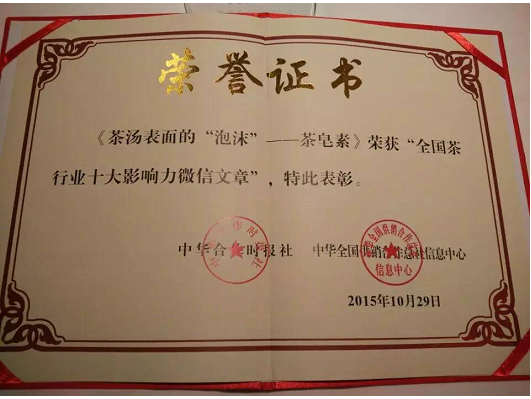 荣誉证书
《茶汤表面的“泡沫”——茶皂素》荣获“全国茶
行业十大影响力微信文章”，特此表彰。
中华合作时报社 中华全国供销合作总社信息中心
信息中心
2015年10月29日